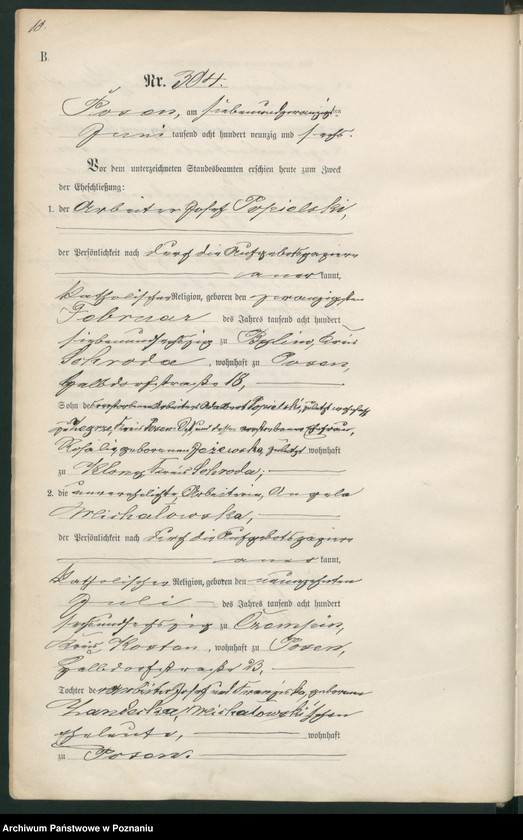 10.
B.
Nr. 304.
Posen, am siebenundzwanzigsten
Juni tausend acht hundert neunzig und sechs.
Vor dem unterzeichneten Standesbeamten erschien heute zum Zweck
der Eheschließung:
1. der Arbeiter Josef Popielski,
der Persönlichkeit nach durch die Aufgebotspapiere
aner kannt,
katholischer Religion, geboren den zwanzigsten
Februar des Jahres tausend acht hundert
siebenundsechszig zu Bylin, Kreis
Schroda, wohnhaft zu Posen,
Halbdorfstraße 18,
Sohn des verstorbenen Arbeiters Adalbert Popielski, zuletzt wohnhaft
zu Kreis Posen-Ost und dessen verstorbener Ehefrau,
Rosalie geborenen Jezewska, zuletzt wohnhaft
zu Klony Kreis Schroda;
2. die unverehelichte Arbeiterin, Angela
Michalowska,
der Persönlichkeit nach durch die Aufgebotspapiere
aner kannt,
katholischer Religion, geboren den neunzehnten
Juli des Jahres tausend acht hundert
sechsundsechszig zu Czempin,
Kreis Kosten, wohnhaft zu Posen,
Halbdorfstraße 23,
Tochter der Arbeiter Josef und Franziska, geborene
Michalowski'schen
Eheleute, wohnhaft
zu Posen.
Archiwum Państwowe w Poznaniu